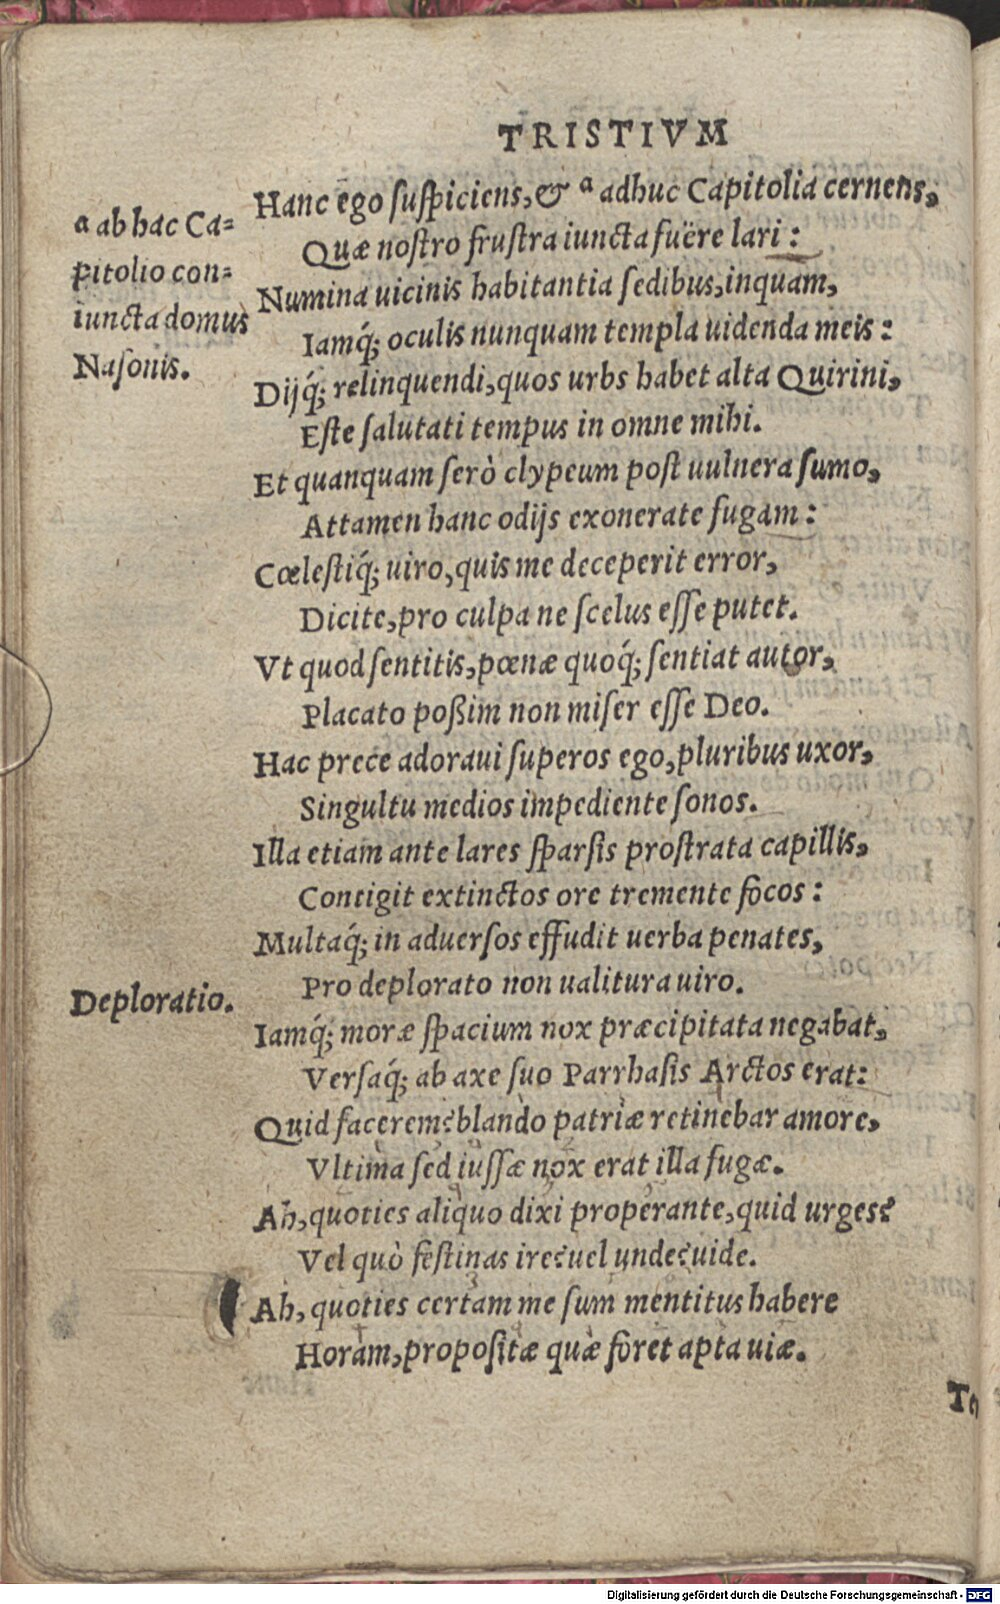 TRISTIVM
Hanc ego suspiciens, & ª adhuc Capitolia cernens,
Quæ nostro frustra iuncta fuëre lari:
Numina uicinis habitantia sedibus, inquam,
Iamq́; oculis nunquam templa uidenda meis:
Dijq́; relinquendi, quos urbs habet alta Quirini,
Este salutati tempus in omne mihi.
Et quanquam serò clypeum post uulnera sumo,
Attamen hanc odijs exonerate fugam:
Cœlestiq́; uiro, quis me deceperit error,
Dicite, pro culpa ne scelus esse putet.
Vt quod sentitis, pœnæ quoq́; sentiat autor,
Placato poßim non miser esse Deo.
Hac prece adoraui superos ego, pluribus uxor,
Singultu medios impediente sonos.
Illa etiam ante lares sparsis prostrata capillis,
Contigit extinctos ore tremente focos:
Multaq́; in aduersos effudit uerba penates,
Pro deplorato non ualitura uiro.
Iamq́; moræ spacium nox præcipitata negabat,
Versaq́; ab axe suo Parrhasis Arctos erat:
Quid facerem? blando patriæ retinebar amore,
Vltima sed iussæ nox erat illa fugæ.
Ah, quoties aliquo dixi properante, quid urges?
Vel quò festinas ire? uel unde? uide.
Ah, quoties certam me sum mentitus habere
Horam, propositæ quæ foret apta uiæ.
ª ab hac Ca=
pitolio con=
iuncta domus
Nasonis.
Deploratio.
Digitalisierung gefördert durch die Deutsche Forschungsgemeinschaft - DFG